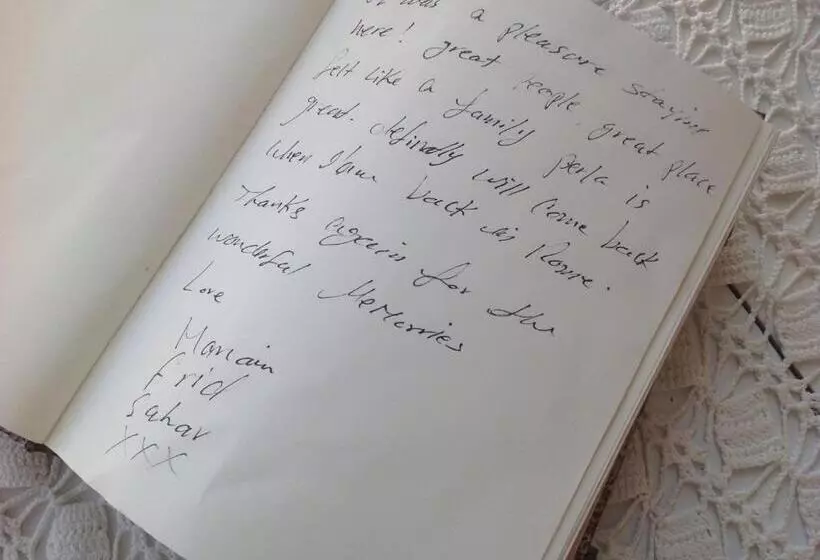 was a pleasure staying
here! great people. great place
felt like a family perla is
great. definally will come back
when I am back in Rome.
Thanks again for the
wonderful Memorries
Love
Mariain
Frid
Sahar
XXX